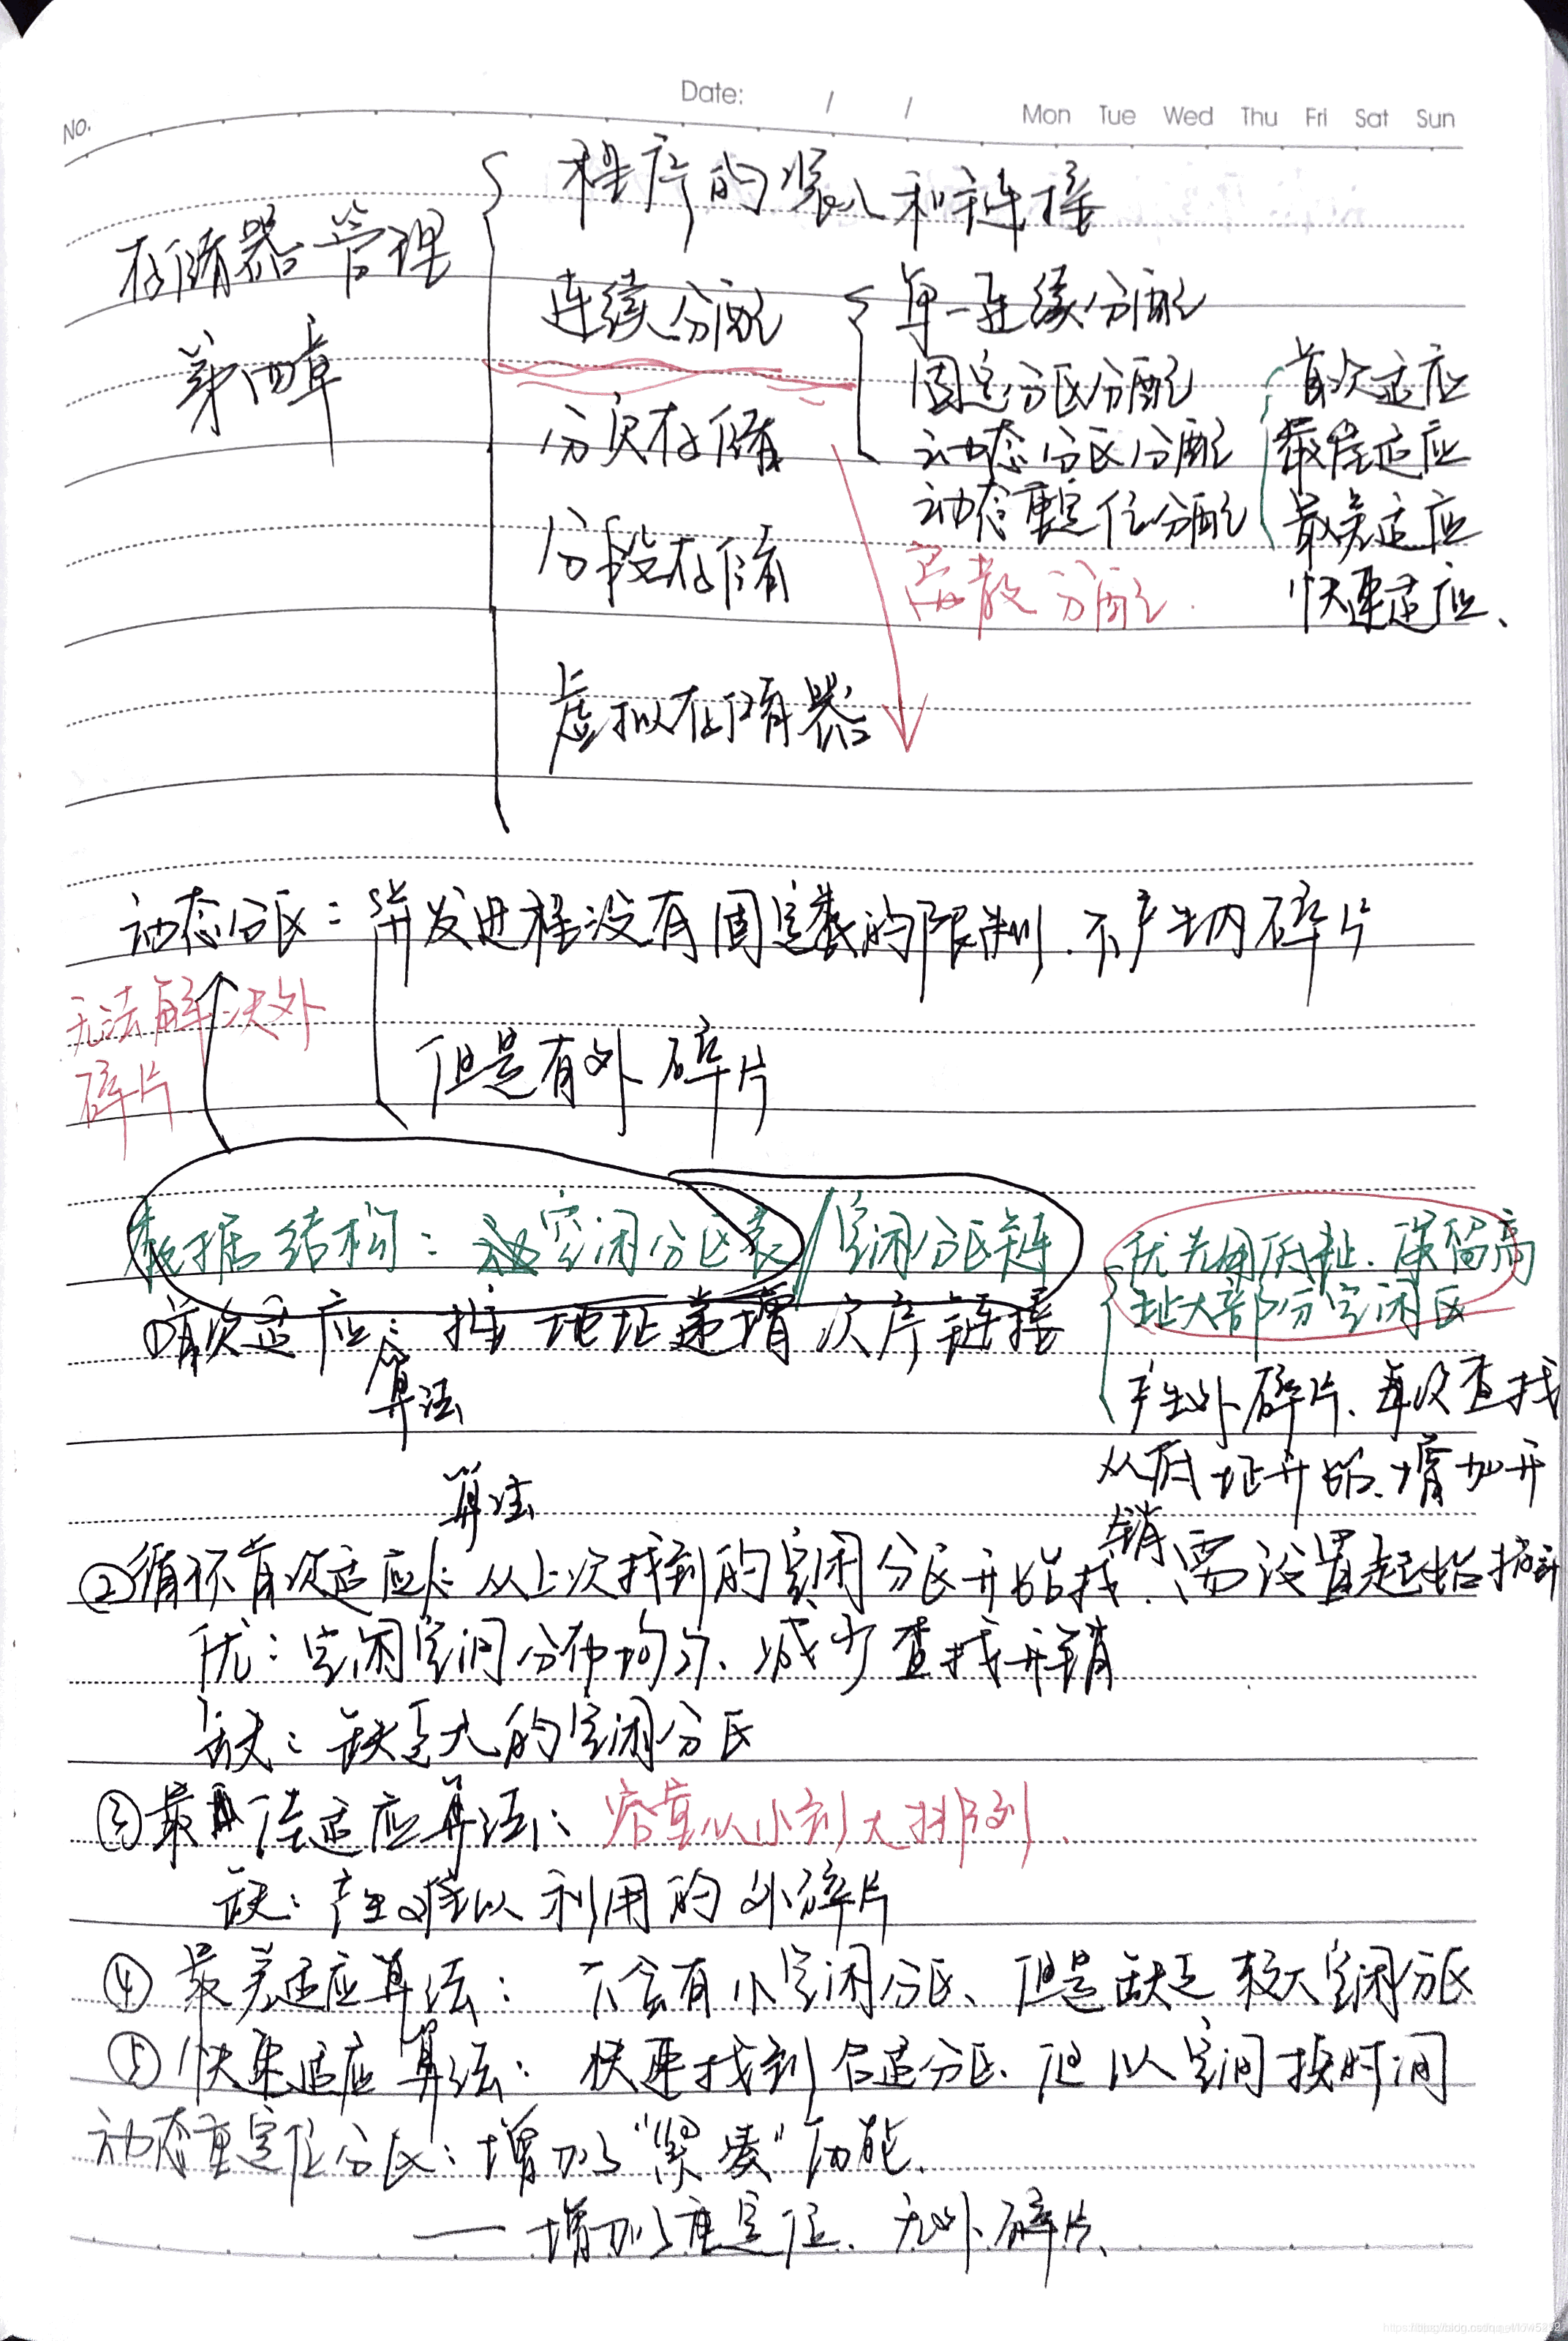 No.
Date: / /
Mon Tue Wed Thu Fri Sat Sun
存储器管理
第四章
程序的装入和链接
连续分配
分页存储
分段存储
虚拟存储器
单一连续分配
固定分区分配
动态分区分配
动态重定位分配
离散分配.
首次适应
最佳适应
最差适应
快速适应、
动态分区: 并发进程没有固定数的限制.不产生内碎片
但是有外碎片
无法解决外
碎片
数据结构: 空闲分区表/空闲分区链
优先用低址.保留高
址大部分空闲区
①首次适应: 按地址递增次序链接
算法
产生外碎片、每次查找
从低址开始.增加开
销
算法
②循环首次适应: 从上次找到的空闲分区开始找.需设置起始指针
优: 空闲空间分布均匀、减少查找开销
缺: 缺乏大的空闲分区
③最佳适应算法: 容量从小到大排列、
缺: 产生难以利用的外碎片
④最差适应算法: 不会有小空闲分区、但是缺乏较大空闲分区
⑤快速适应算法: 快速找到合适分区、但以空间换时间
动态重定位分区: 增加了"紧凑"功能.
—增加了重定位、无外碎片、